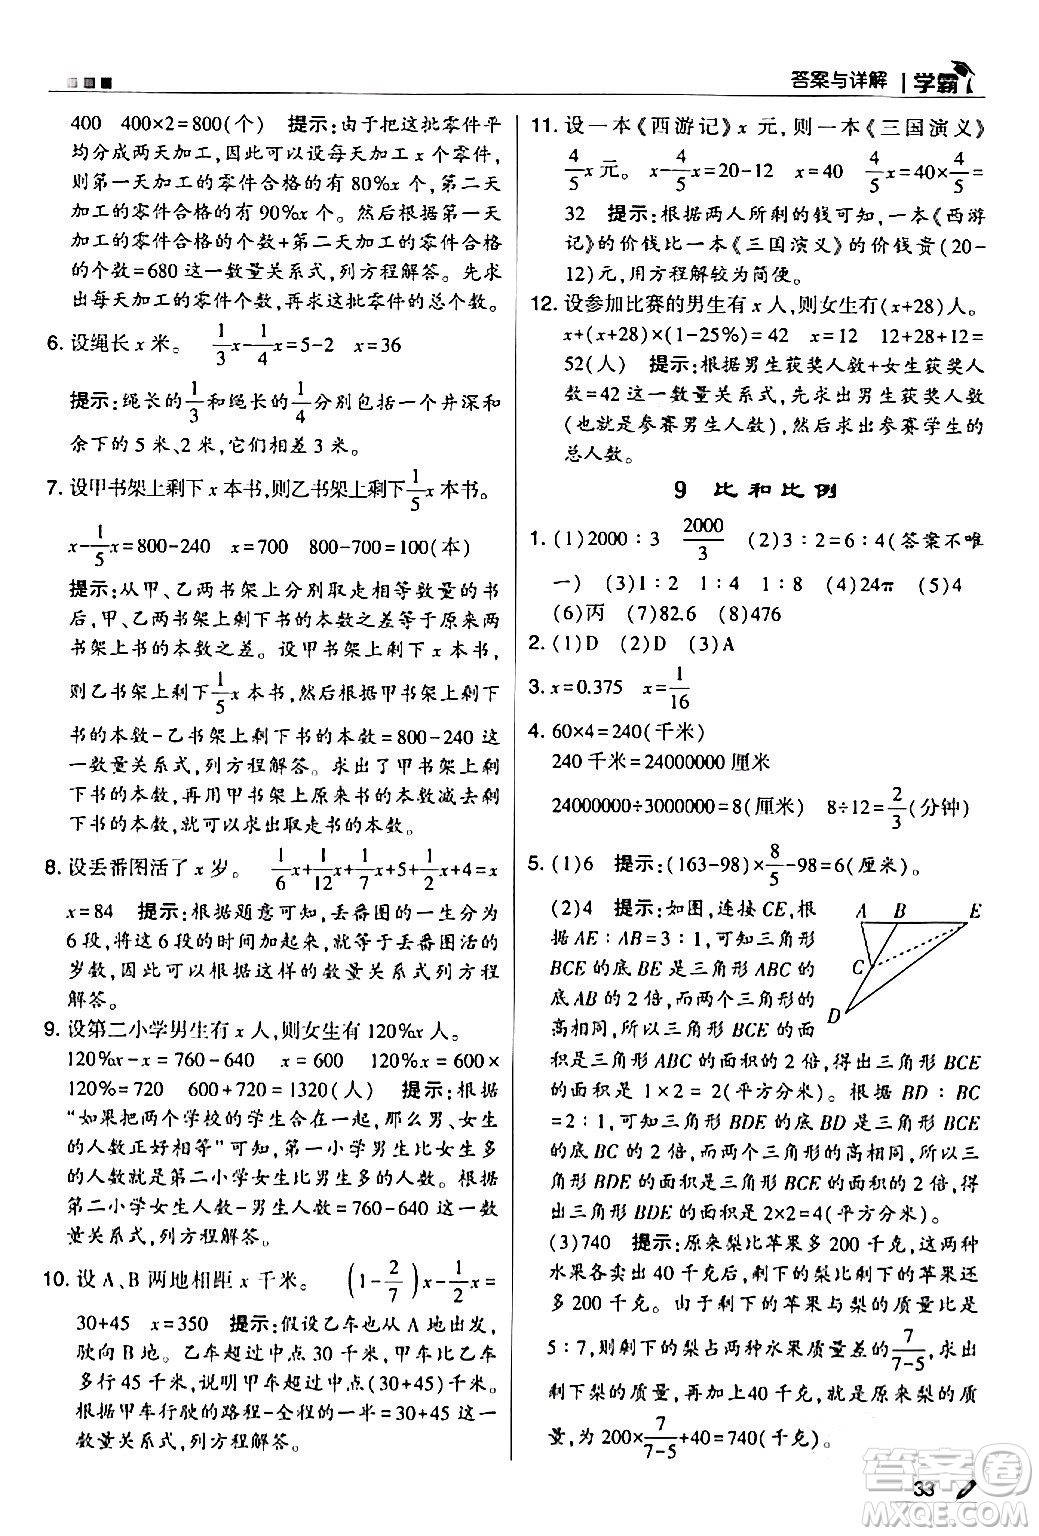 答案与详解 | 学霸
400 400×2=800(个) 提示:由于把这批零件平
均分成两天加工,因此可以设每天加工 x 个零件,
则第一天加工的零件合格的有 80%x 个,第二天
加工的零件合格的有 90%x 个。然后根据第一天
加工的零件合格的个数+第二天加工的零件合格
的个数=680 这一数量关系式,列方程解答。先求
出每天加工的零件个数,再求这批零件的总个数。
6. 设绳长 x 米。 1/3x-1/4x=5-2 x=36
提示:绳长的1/3和绳长的1/4分别包括一个井深和
余下的 5 米、2 米,它们相差 3 米。
7. 设甲书架上剩下 x 本书,则乙书架上剩下1/5x 本书。
x-1/5x=800-240 x=700 800-700=100(本)
提示:从甲、乙两书架上分别取走相等数量的书
后,甲、乙两书架上剩下书的本数之差等于原来两
书架上书的本数之差。设甲书架上剩下 x 本书,
则乙书架上剩下1/5x 本书,然后根据甲书架上剩下
书的本数-乙书架上剩下书的本数=800-240 这
一数量关系式,列方程解答。求出了甲书架上剩
下书的本数,再用甲书架上原来书的本数减去剩
下书的本数,就可以求出取走书的本数。
8. 设丢番图活了 x 岁。 1/6x+1/12x+1/7x+5+1/2x+4=x
x=84 提示:根据题意可知,丢番图的一生分为
6 段,将这 6 段的时间加起来,就等于丢番图活的
岁数,因此可以根据这样的数量关系式列方程
解答。
9. 设第二小学男生有 x 人,则女生有 120%x 人。
120%x-x=760-640 x=600 120%x=600×
120%=720 600+720=1320(人) 提示:根据
“如果把两个学校的学生合在一起,那么男、女生
的人数正好相等”可知,第一小学男生比女生多
的人数就是第二小学女生比男生多的人数。根据
第二小学女生人数-男生人数=760-640 这一数
量关系式,列方程解答。
10. 设 A、B 两地相距 x 千米。 (1-2/7)x-1/2x=
30+45 x=350 提示:假设乙车从 A 地出发,
驶向 B 地。乙车超过中点 30 千米,甲车比乙车
多行 45 千米,说明甲车超过中点(30+45)千米。
根据甲车行驶的路程-全程的一半=30+45 这一
数量关系式,列方程解答。
11. 设一本《西游记》x 元,则一本《三国演义》
4/5x 元。 x-4/5x=20-12 x=40 4/5x=40×4/5=
32 提示:根据两人所剩的钱可知,一本《西游
记》的价钱比一本《三国演义》的价钱贵(20-
12)元,用方程解较为简便。
12. 设参加比赛的男生有 x 人,则女生有(x+28)人。
x+(x+28)×(1-25%)=42 x=12 12+12+28=
52(人) 提示:根据男生获奖人数+女生获奖人
数=42 这一数量关系式,先求出男生获奖人数
(也就是参赛男生人数),然后求出参赛学生的
总人数。
9 比和比例
1. (1)2000∶3 2000/3 (2)3∶2=6∶4(答案不唯
一) (3)1∶2 1∶8 (4)24π (5)4
(6)丙 (7)82.6 (8)476
2. (1)D (2)D (3)A
3. x=0.375 x=1/16
4. 60×4=240(千米)
240 千米=24000000 厘米
24000000÷3000000=8(厘米) 8÷12=2/3(分钟)
5. (1)6 提示:(163-98)×8/5-98=6(厘米)。
(2)4 提示:如图,连接 CE,根
据 AE∶AB=3∶1,可知三角形
BCE 的底 BE 是三角形 ABC 的
底 AB 的 2 倍,而两个三角形的
高相同,所以三角形 BCE 的面
积是三角形 ABC 的面积的 2 倍,得出三角形 BCE
的面积是 1×2=2(平方分米)。根据 BD∶BC
=2∶1,可知三角形 BDE 的底 BD 是三角形 BCE
的底 BC 的 2 倍,而两个三角形的高相同,所以三
角形 BDE 的面积是三角形 BCE 的面积的 2 倍,得
出三角形 BDE 的面积是 2×2=4(平方分米)。
(3)740 提示:原来梨比苹果多 200 千克,这两种
水果各卖出 40 千克后,剩下的梨比剩下的苹果还
多 200 千克。由于剩下的苹果与梨的质量比是
5∶7,则剩下的梨占两种水果质量差的7/(7-5),求出
剩下梨的质量,再加上40 千克,就是原来梨的质
量,为 200×7/(7-5)+40=740(千克)。
A B E
C
D
33
答案圈
MXQE.COM